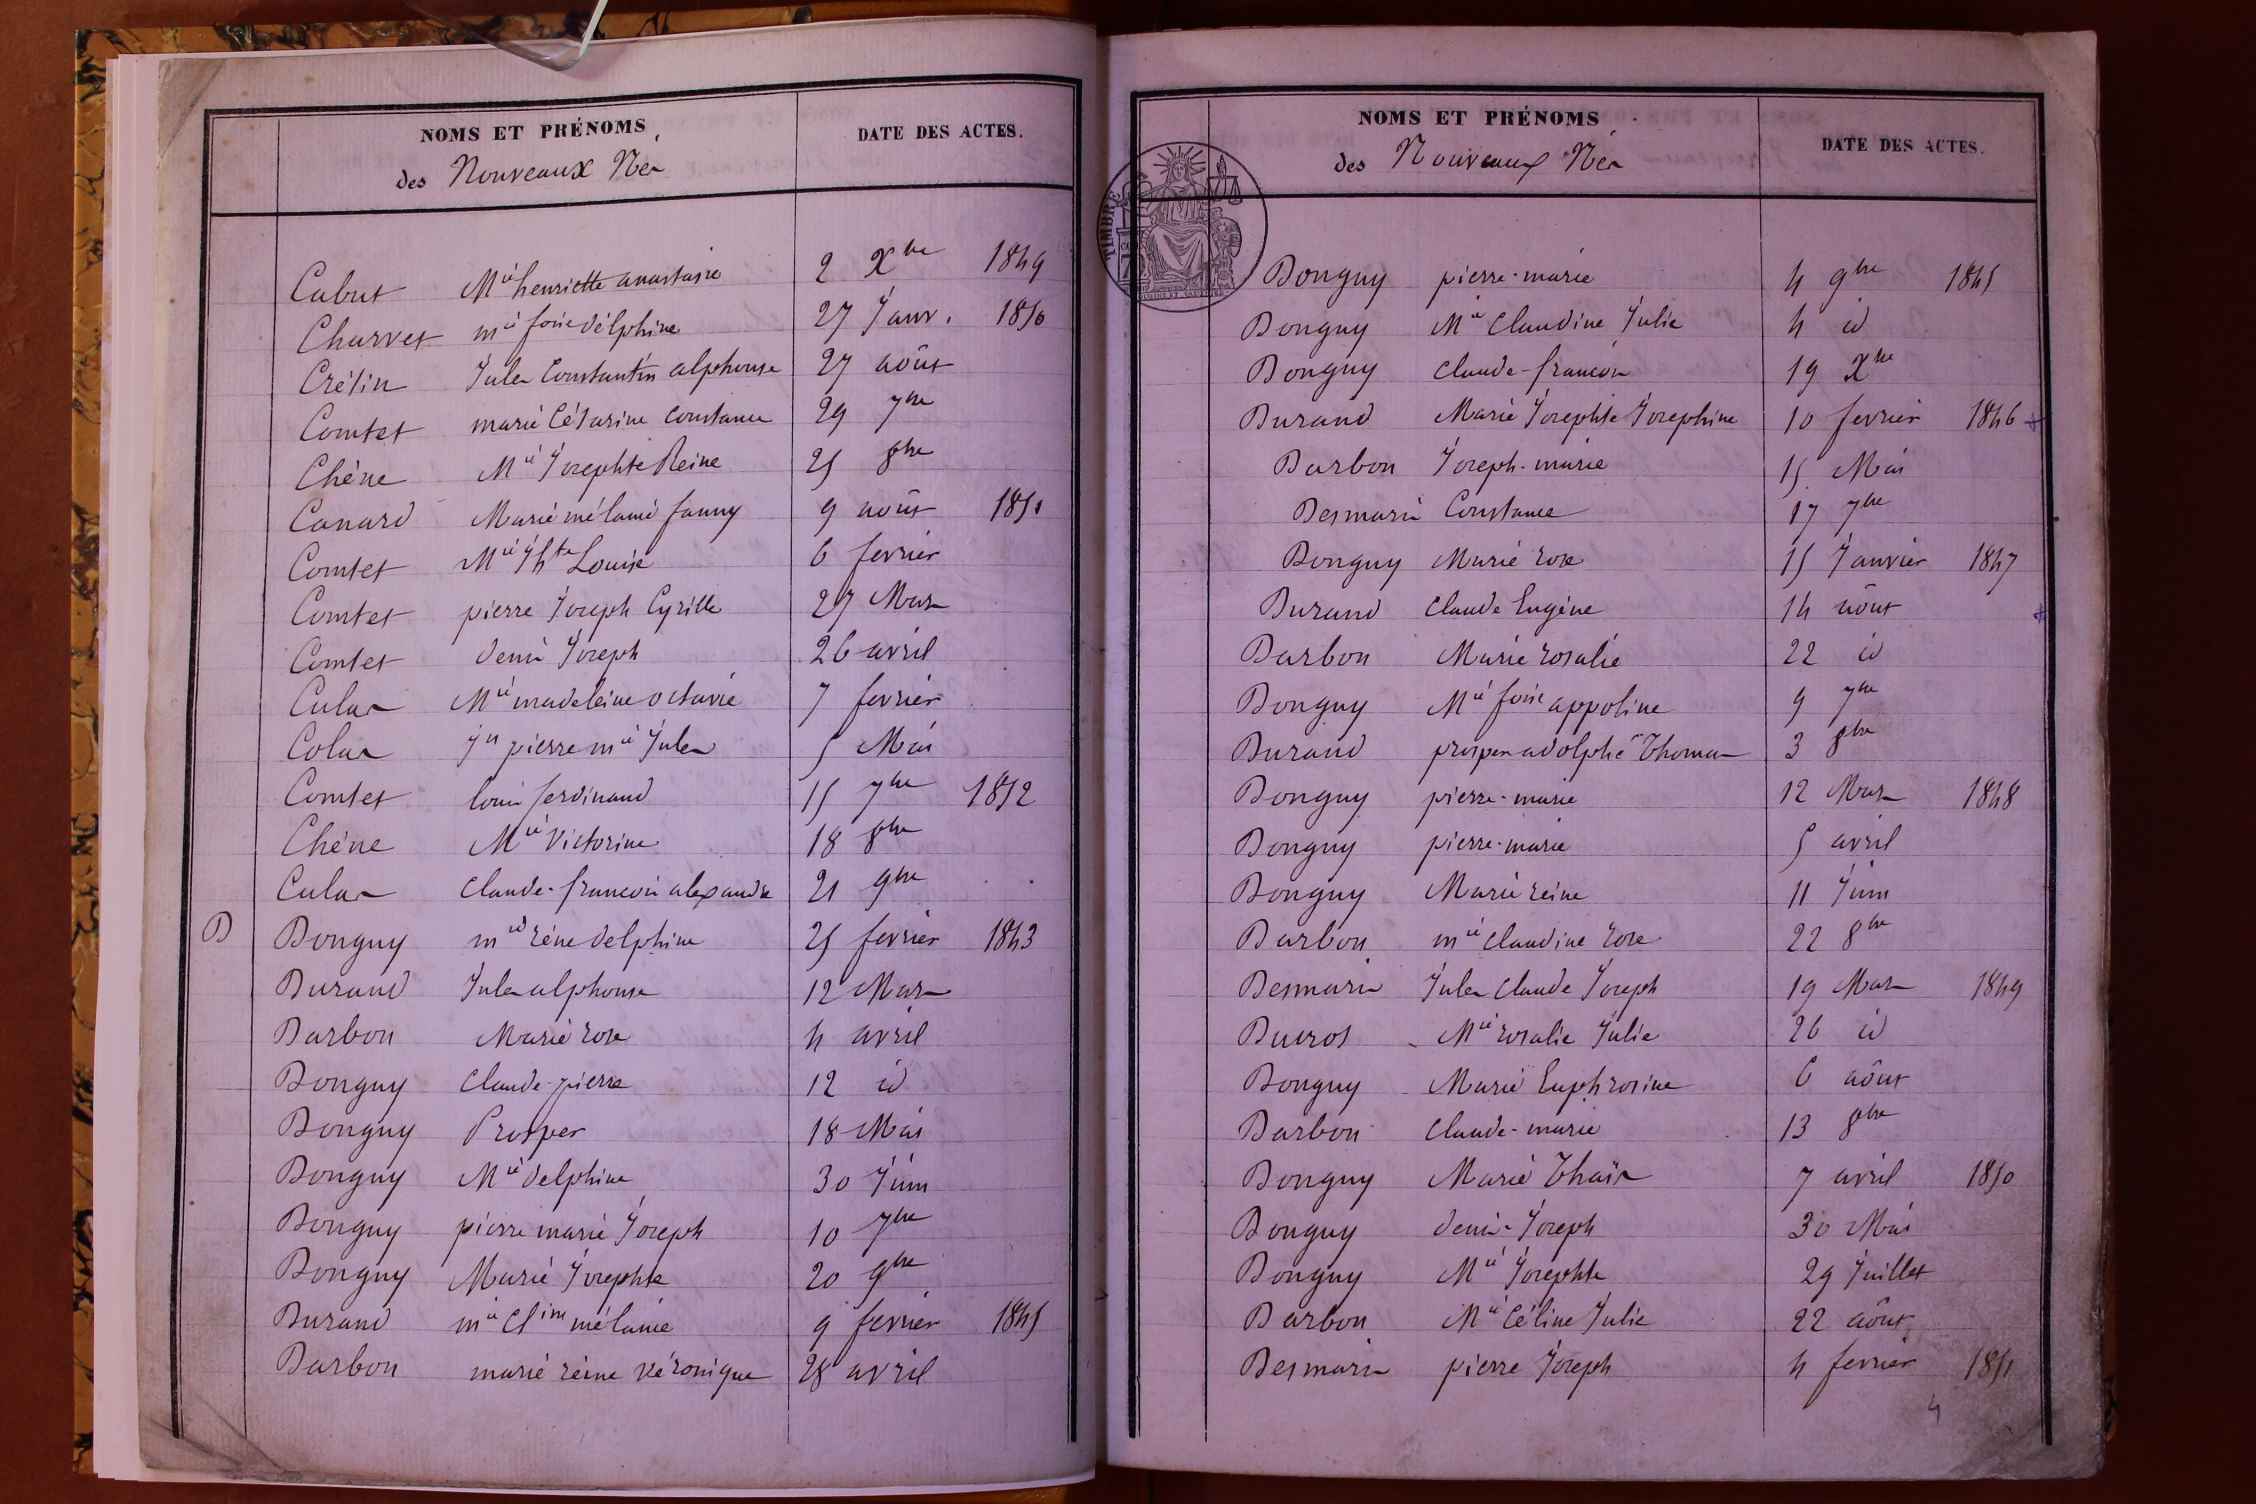 NOMS ET PRÉNOMS
DATE DES ACTES.
des Nouveaux Nés
Cabut Mie henriette anastasie 2 Xbre 1849
Charvet mie foise délphine 27 Janv. 1850
Crétin Jules Constantin alphonse 27 août
Comtet marie Césarine Constance 29 7bre
Chêne Mie Josephte Reine 25 8bre
Canard Marie mélanie fanny 9 août 1851
Comtet Mie Jhte Louise 6 fevrier
Comtet pierre Joseph Cyrille 27 Mars
Comtet denis Joseph 26 avril
Culas Mie madeleine octavie 7 fevrier
Colas Jn pierre mie Jules 5 Mai
Comtet louis ferdinand 15 7bre 1852
Chêne Mie Victorine 18 8bre
Culas Claude-francois alexandre 21 9bre
D Donguy mie réne delphine 25 fevrier 1843
Durand Jules alphonse 12 Mars
Darbon Marie rose 4 avril
Donguy Claude-pierre 12 id
Donguy Prosper 18 Mai
Donguy Mie delphine 30 Juin
Donguy pierre marie Joseph 10 7bre
Donguy Marie Josephte 20 9bre
Durand mie Cl ine mélanie 9 fevrier 1845
Darbon marie réine véronique 28 avril
NOMS ET PRÉNOMS
DATE DES ACTES.
des Nouveaux Nés
TIMBRE
Donguy pierre-marie 4 9bre 1845
Donguy Mie Claudine Julie 4 id
Donguy Claude-francois 19 Xbre
Durand Marie Josephte Josephine 10 fevrier 1846
Darbon Joseph-marie 15 Mai
Desmaris Constance 17 7bre
Donguy Marie rose 15 Janvier 1847
Durand Claude Eugène 14 août
Darbon Marie rosalie 22 id
Donguy Mie foise appoline 9 7bre
Durand prosper adolphe Thomas 3 8bre
Donguy pierre-marie 12 Mars 1848
Donguy pierre-marie 5 avril
Donguy Marie reine 11 Juin
Darbon mie Claudine rose 22 8bre
Desmaris Jules Claude Joseph 19 Mars 1849
Ducros Mie rosalie Julie 26 id
Donguy Marie Euphrosine 6 août
Darbon Claude-marie 13 8bre
Donguy Marie Thaïs 7 avril 1850
Donguy denis-Joseph 30 Mai
Donguy Mie Josephte 29 Juillet
Darbon Mie Céline Julie 22 août
Desmaris pierre Joseph 4 fevrier 1851
4